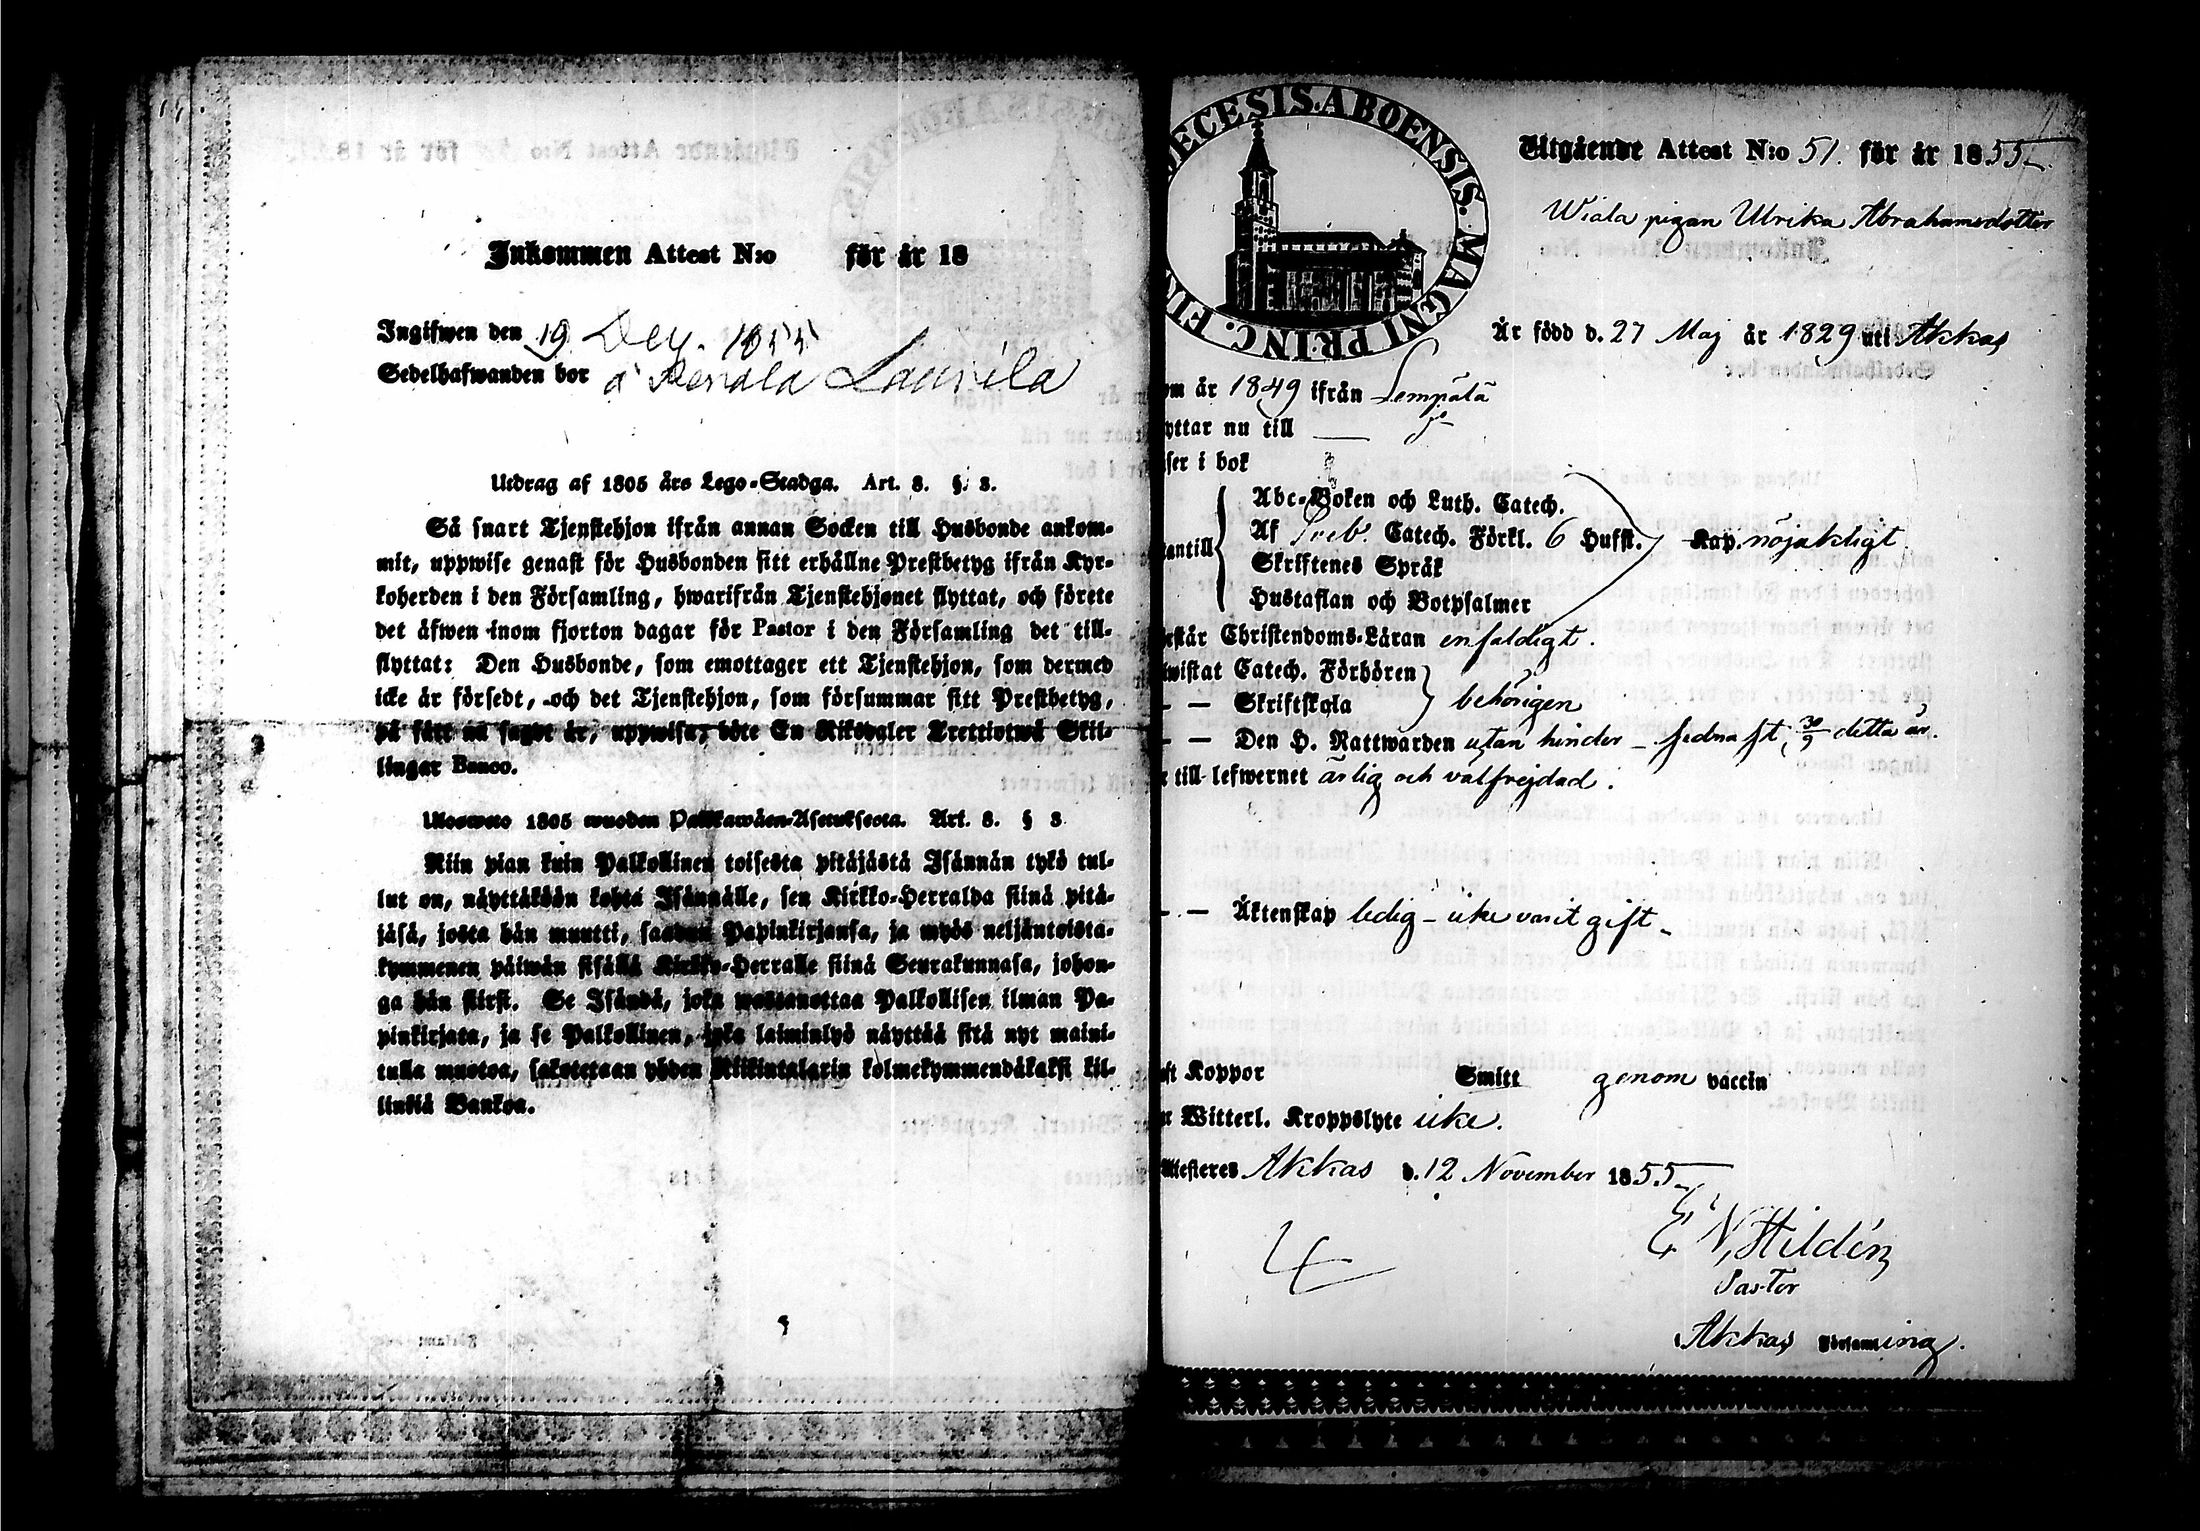 Inkommen Attest N:o för år 18
Ingifwen den 19 Dec. 1855
Sedelhafwanden bor å Perälä Laurila
Utdrag af 1805 års Lego-Stadga. Art. 8. §. 3.
Så snart Tjenstehjon ifrån annan Socken till Husbonde ankom-
mit, uppwise genast för Husbonden sitt erhållne Prestbetyg ifrån Kyr-
koherden i den Församling, hwarifrån Tjenstehjonet flyttat, och förete
det äfwen inom fjorton dagar för Pastor i den Församling det till-
flyttat: Den Husbonde, som emottager ett Tjenstehjon, som dermed
icke är försedt, och det Tjenstehjon, som försummar sitt Prestbetyg,
på sätt nu sagdt är, uppwisa, böte En Riksdaler Trettiotwå Skil-
lingar Banco.
Ulosweto 1805 wuoden Palkkawäen-Asetuksesta. Art. 8. § 3
Niin pian kuin Palkollinen toisesta pitäjästä Isännän tykö tul-
lut on, näyttäkään kohta Isännälle, sen Kirkko-Herralda siinä pitä-
jäsä, josta hän muutti, saadun Papinkirjansa, ja myös neljäntoista-
kymmenen päiwän sisällä Kirkko-Herralle siinä Seurakunnasa, johon-
ga hän siirsi. Se Isändä, joka wastaanottaa Palkollisen ilman Pa-
pinkirjata, ja se Palkollinen, joka laiminlyö näyttää sitä nyt maini-
tulla muotoa, sakotetaan yhden Riikintalarin kolmekymmendäkaksi kil-
linkiä Bankoa.
DECESIS. ABOENSIS. MAGNI PRINC. FIN
Utgående Attest N:o 51. för år 1855
Wiala pigan Ulrika Abrahamsdotter
Är född d. 27 Maj år 1829 uti Akkas
om år 1849 ifrån Lempälä
yttar nu till
ser i bok
Abc-Boken och Luth. Catech.
antill Af Sveb. Catech. Förkl. 6 Hufst. Kap. nöjaktigt
Skriftenes Språk
Hustaflan och Botpsalmer
estår Christendoms-Läran enfaldigt.
wistat Catech. Förhören
– – Skriftskola behörigen
– – Den H. Nattwarden utan hinder – sednast 30/9 detta år.
r till lefwernet ärlig och välfrejdad.
– – Äktenskap ledig – icke varit gift.
ft Koppor Smitt genom vaccin
r Witterl. Kroppslyte icke.
Attesteres Akkas d. 12 November 1855
E N Hildén
Pastor
Akkas Församling.